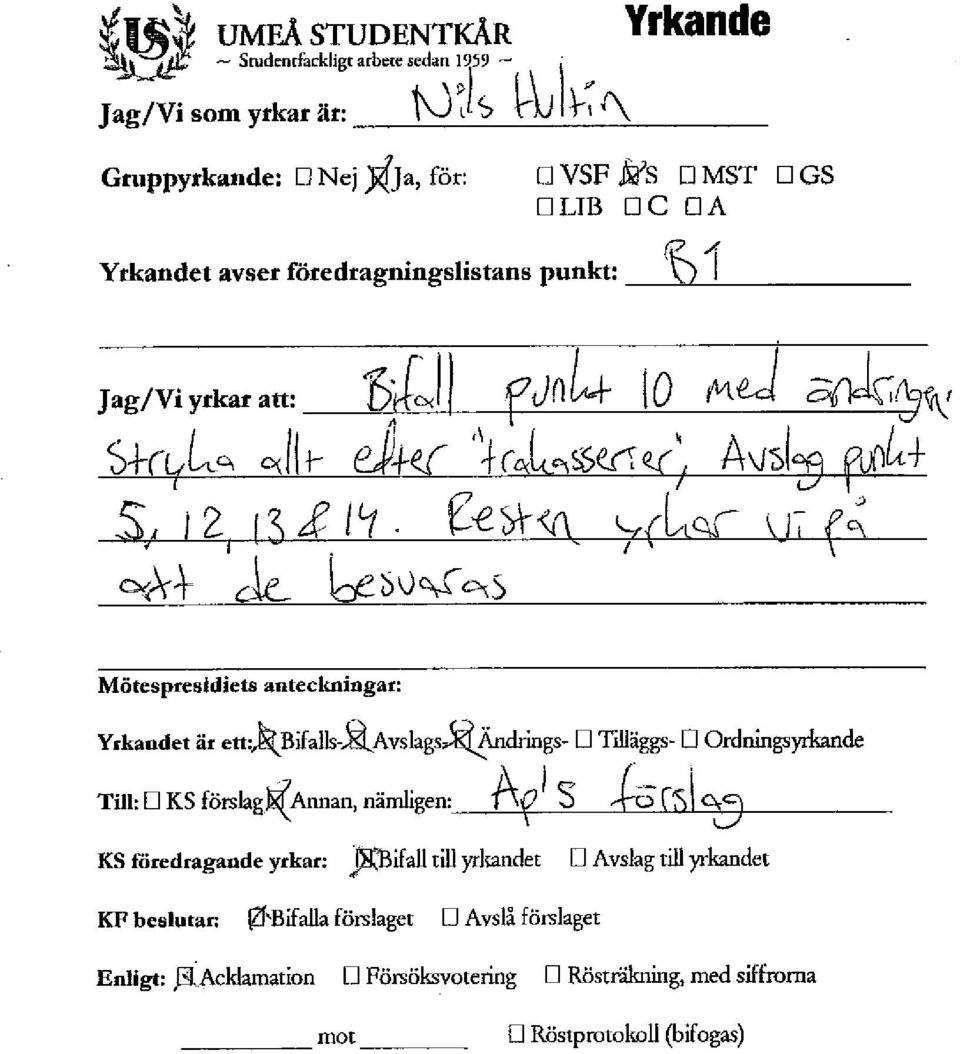 US
UMEÅ STUDENTKÅR
~ Studentfackligt arbete sedan 1959 ~
Yrkande
Jag/Vi som yrkar är: Nils Hultin
Gruppyrkande: ☐ Nej ☒ Ja, för: ☐ VSF ☒ S ☐ MST ☐ GS
☐ LIB ☐ C ☐ A
Yrkandet avser föredragningslistans punkt: B1
Jag/Vi yrkar att: Bifall punkt 10 med ändringen
Stryka allt efter "trakasserier", Avslag punkt
5, 12, 13 & 14. Resten yrkar vi på
att de besvaras
Mötespresidiets anteckningar:
Yrkandet är ett: ☒ Bifalls- ☒ Avslags- ☒ Ändrings- ☐ Tilläggs- ☐ Ordningsyrkande
Till: ☐ KS förslag ☒ Annan, nämligen: Ap's förslag
KS föredragande yrkar: ☒ Bifall till yrkandet ☐ Avslag till yrkandet
KF beslutar: ☒ Bifalla förslaget ☐ Avslå förslaget
Enligt: ☒ Acklamation ☐ Försöksvotering ☐ Rösträkning, med siffrorna
mot ☐ Röstprotokoll (bifogas)